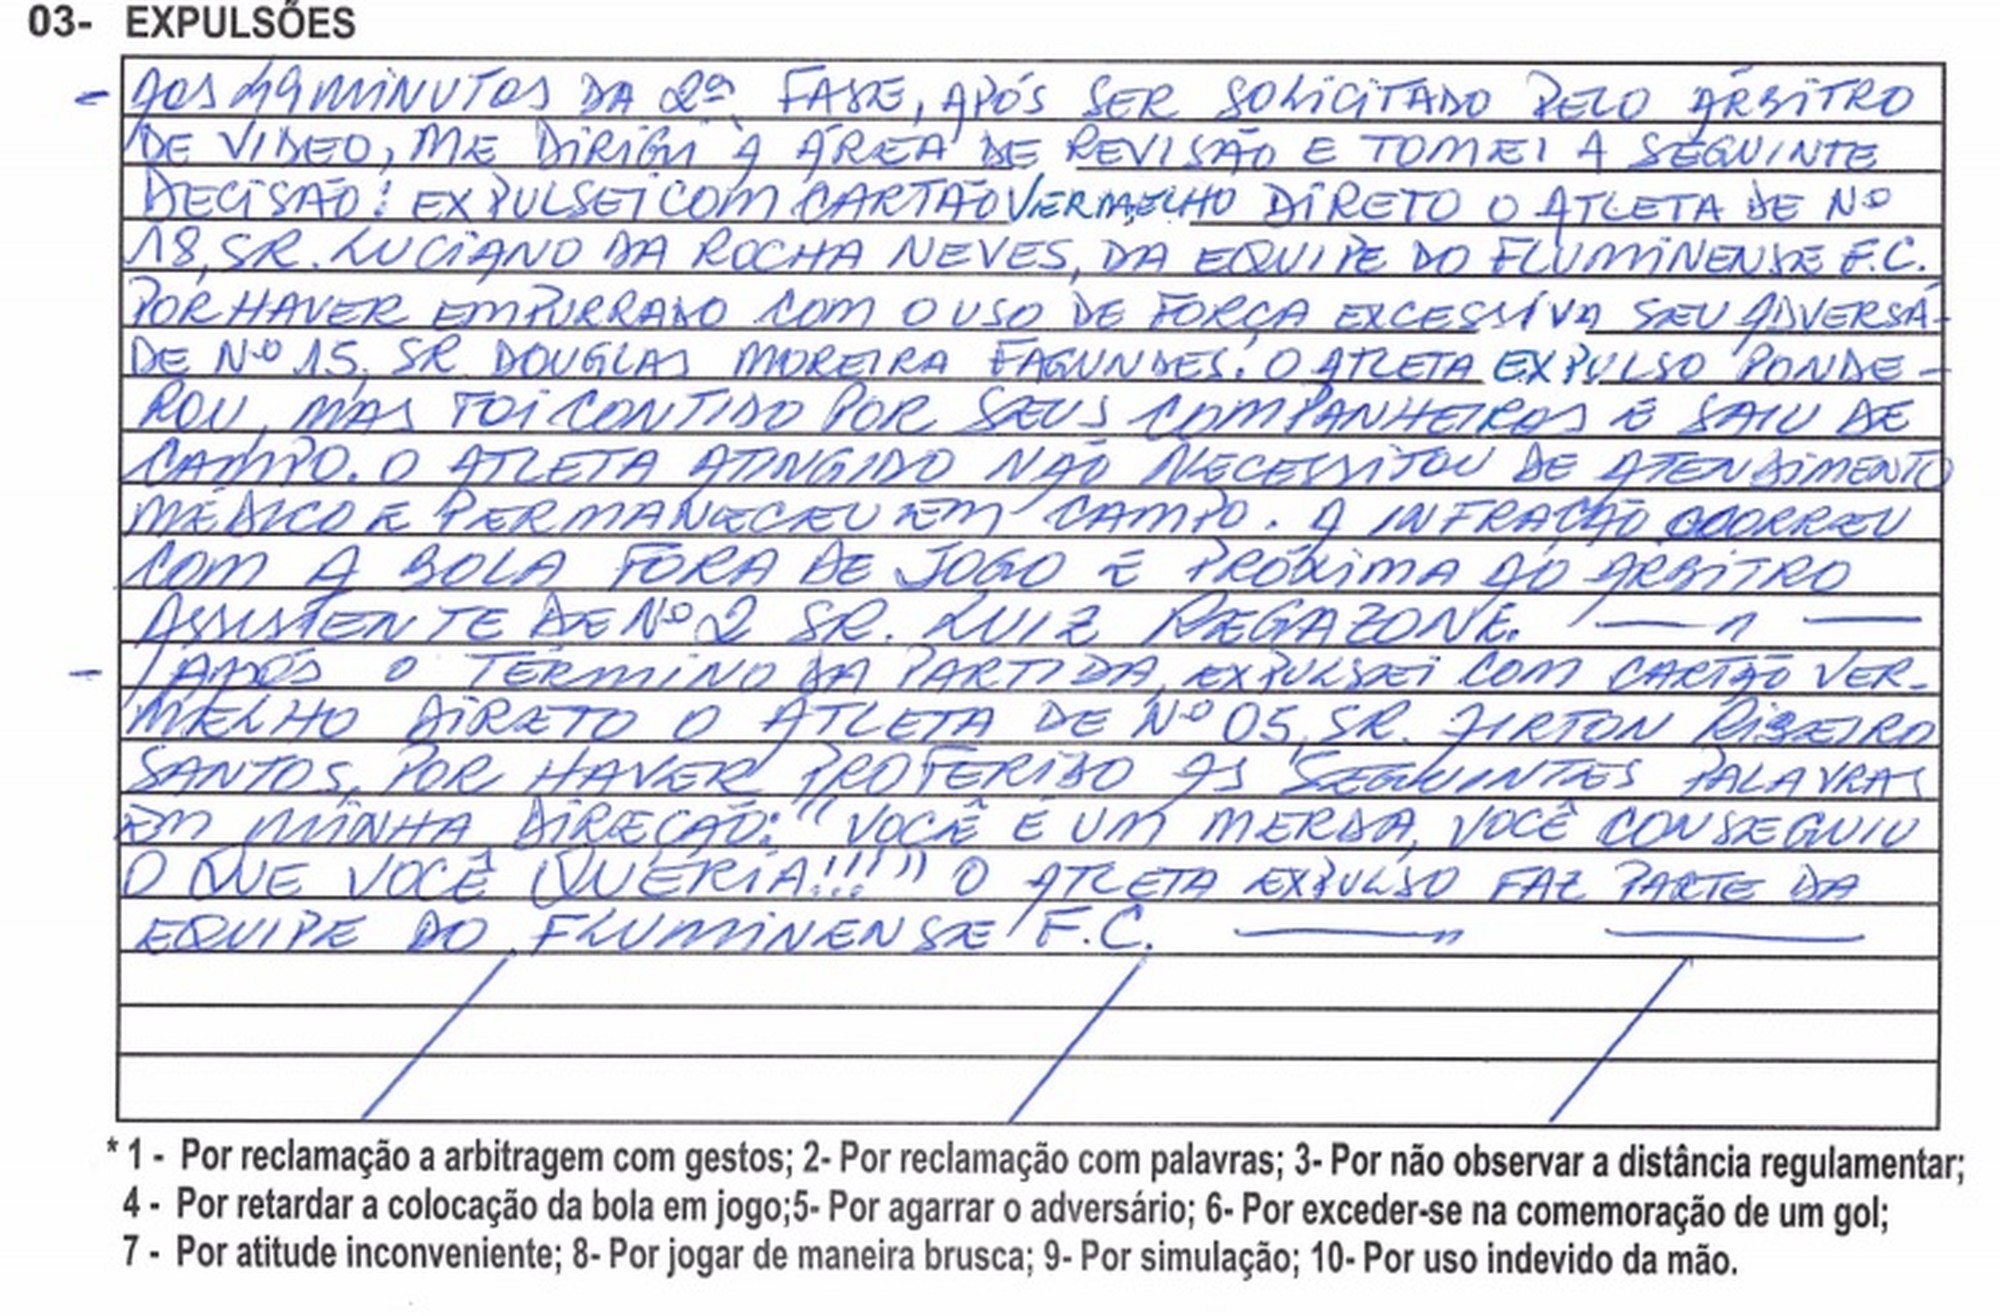 03- EXPULSÕES
- AOS 49 MINUTOS DA 2ª FASE, APÓS SER SOLICITADO PELO ÁRBITRO
DE VIDEO, ME DIRIGI À ÁREA DE REVISÃO E TOMEI A SEGUINTE
DECISÃO: EXPULSEI COM CARTÃO VERMELHO DIRETO O ATLETA DE Nº
18, SR. LUCIANO DA ROCHA NEVES, DA EQUIPE DO FLUMINENSE F.C.
POR HAVER EMPURRADO COM O USO DE FORÇA EXCESSIVA SEU ADVERSÁ-
DE Nº 15, SR. DOUGLAS MOREIRA FAGUNDES. O ATLETA EXPULSO PONDE-
ROU, MAS FOI CONTIDO POR SEUS COMPANHEIROS E SAIU DE
CAMPO. O ATLETA ATINGIDO NÃO NECESSITOU DE ATENDIMENTO
MÉDICO E PERMANECEU EM CAMPO. A INFRAÇÃO OCORREU
COM A BOLA FORA DE JOGO E PRÓXIMA AO ÁRBITRO
ASSISTENTE DE Nº 2 SR. LUIZ REGAZONE. — n —
- APÓS O TÉRMINO DA PARTIDA, EXPULSEI COM CARTÃO VER-
MELHO DIRETO O ATLETA DE Nº 05, SR. AIRTON RIBEIRO
SANTOS, POR HAVER PROFERIDO AS SEGUINTES PALAVRAS
EM MINHA DIREÇÃO: "VOCÊ É UM MERDA, VOCÊ CONSEGUIU
O QUE VOCÊ QUERIA!!!!" O ATLETA EXPULSO FAZ PARTE DA
EQUIPE DO FLUMINENSE F.C. — n —
* 1 - Por reclamação a arbitragem com gestos; 2- Por reclamação com palavras; 3- Por não observar a distância regulamentar;
4 - Por retardar a colocação da bola em jogo;5- Por agarrar o adversário; 6- Por exceder-se na comemoração de um gol;
7 - Por atitude inconveniente; 8- Por jogar de maneira brusca; 9- Por simulação; 10- Por uso indevido da mão.